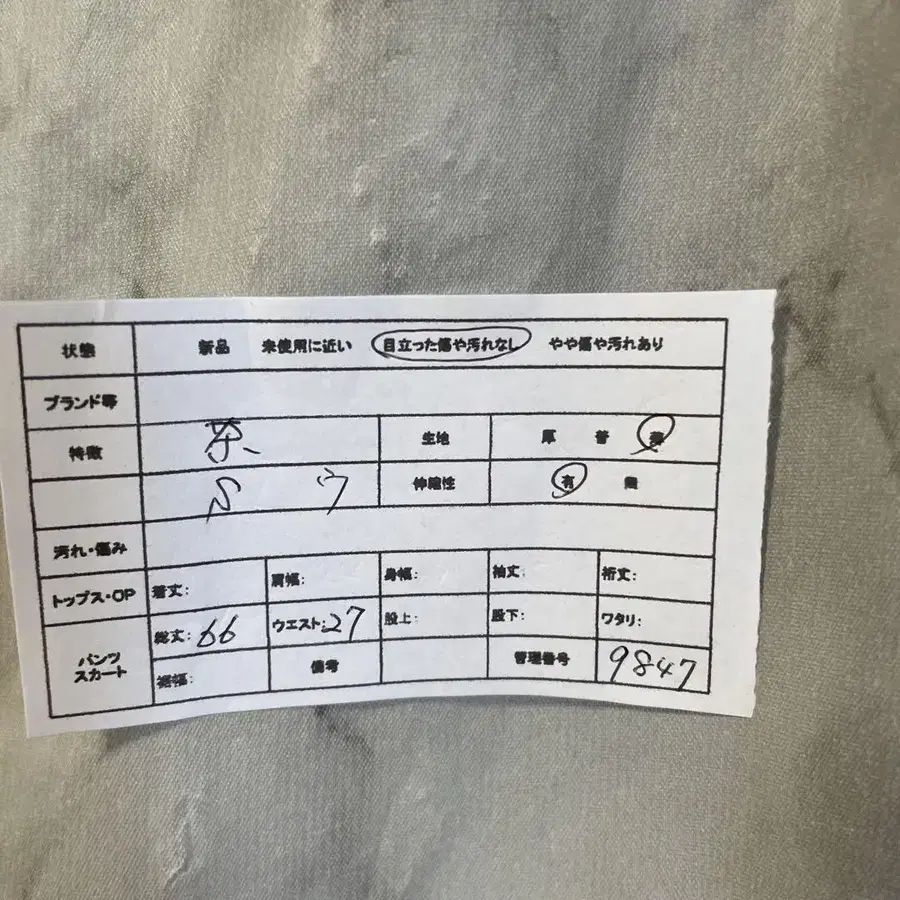 状態 新品 未使用に近い 目立った傷や汚れなし やや傷や汚れあり
ブランド等
特徴 茶 生地 厚 普 薄
ウ 伸縮性 有 無
汚れ・傷み
トップス・OP 着丈: 肩幅: 身幅: 袖丈: 裄丈:
パンツ スカート 総丈: 66 ウエスト: 27 股上: 股下: ワタリ:
裾幅: 備考 管理番号 9847